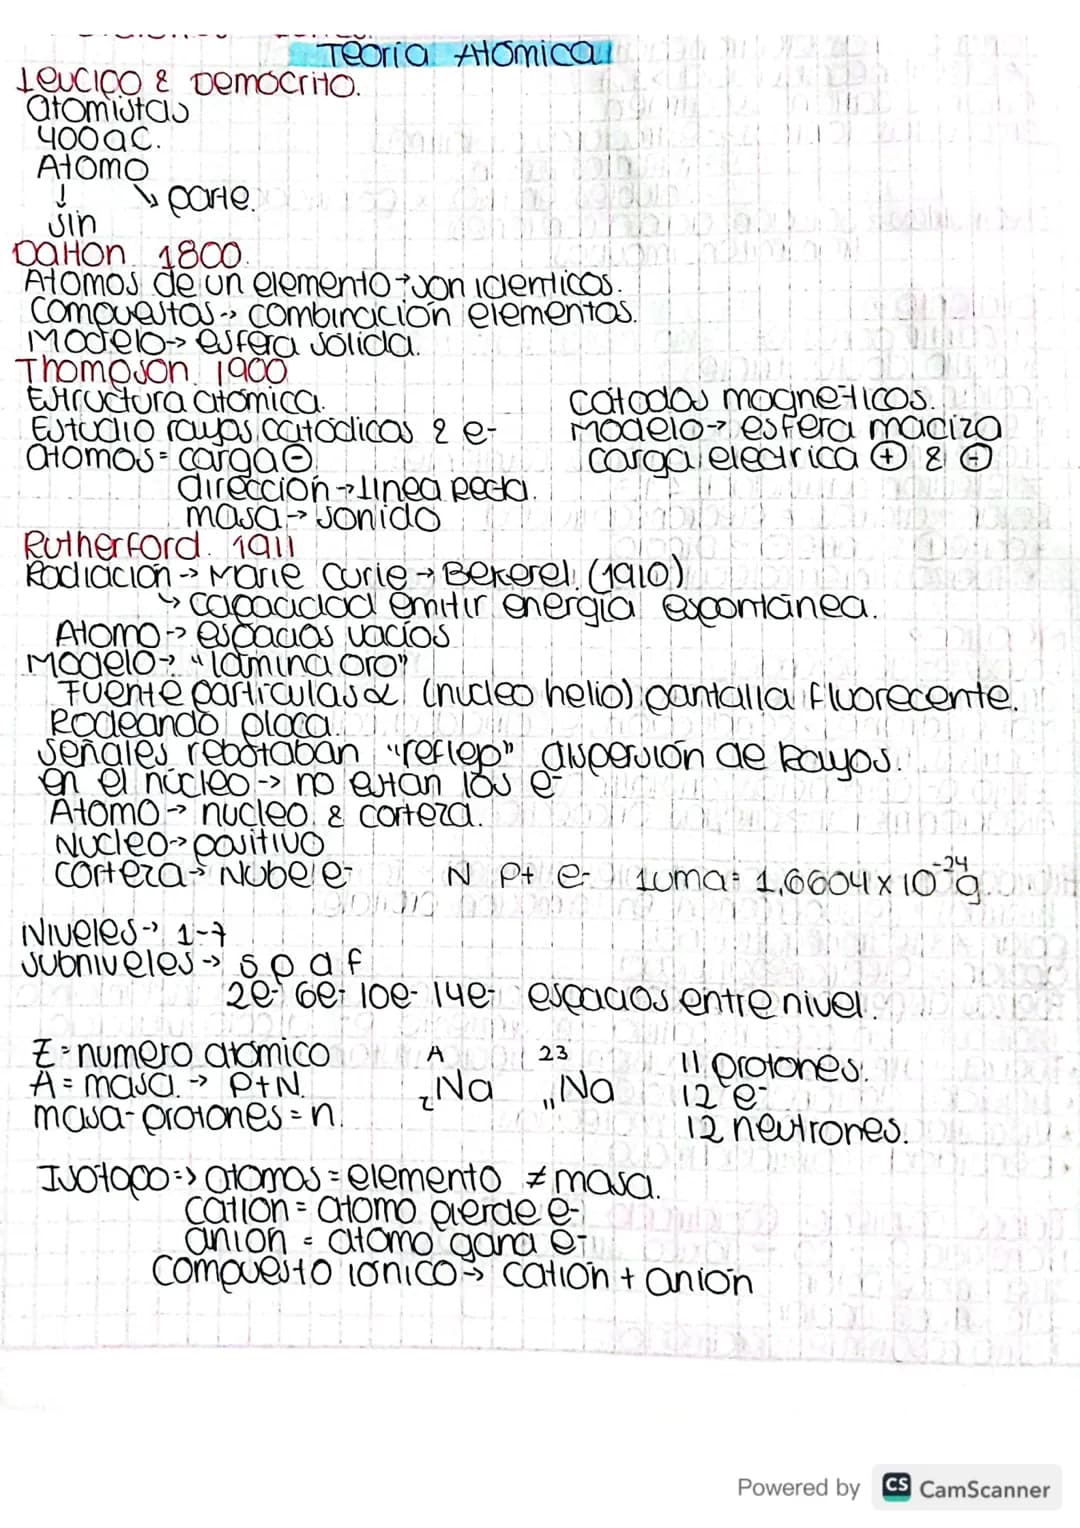 Teoría Atómica
Leucipo & Demócrito.
atomistas
400 aC.
Átomo
↓ ↘ parte.
sin
Dalton 1800.
Átomos de un elemento → son identicos.
Compuestos → combinación elementos.
Modelo → esfera sólida.
Thompson 1900
Estructura atómica.
Estudio rayos catódicos & e-
átomos = carga ⊖
dirección → línea recta.
masa → sonido
cátodos magnéticos.
Modelo → esfera maciza
carga electrica ⊕ & ⊖
Rutherford. 1911
Radiación → Marie Curie → Bekerel. (1910)
↳ capacidad emitir energía espontánea.
Átomo → espacios vacíos
Modelo → "lámina oro"
Fuente particulas α (nucleo helio) pantalla fluorecente.
Rodeando placa.
señales rebotaban "reflejo" dispersión de Rayos.
en el núcleo → no están los e-
Átomo → nucleo & corteza.
Nucleo → positivo
corteza → Nube e-
N P+ e- 1uma = 1,6604 x 10⁻²⁴g.
Niveles → 1-7
subniveles → s p d f
2e- 6e- 10e- 14e- espacios entre nivel.
Z = numero atómico
A = masa. → P+N.
masa - protones = n.
A 23
Na Na
z 11
11 protones.
12 e-
12 neutrones.
Isótopo => atomos = elemento ≠ masa.
catión = átomo pierde e-
anión = átomo gana e-
Compuesto iónico → catión + anión
Powered by CS CamScanner